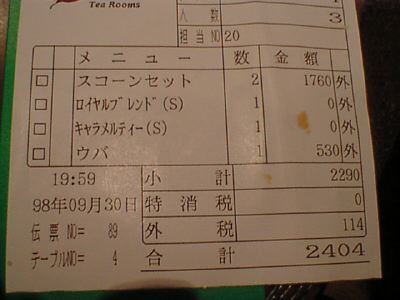 Tea Rooms
人 数 3
担当NO 20
メニュー 数 金額
スコーンセット 2 1760 外
ﾛｲﾔﾙﾌﾞﾚﾝﾄﾞ(S) 1 0 外
ｷｬﾗﾒﾙﾃｨｰ(S) 1 0 外
ウバ 1 530 外
19:59 小 計 2290
98年09月30日 特消税 0
伝票NO= 89 外 税 114
テーブルNO= 4 合 計 2404